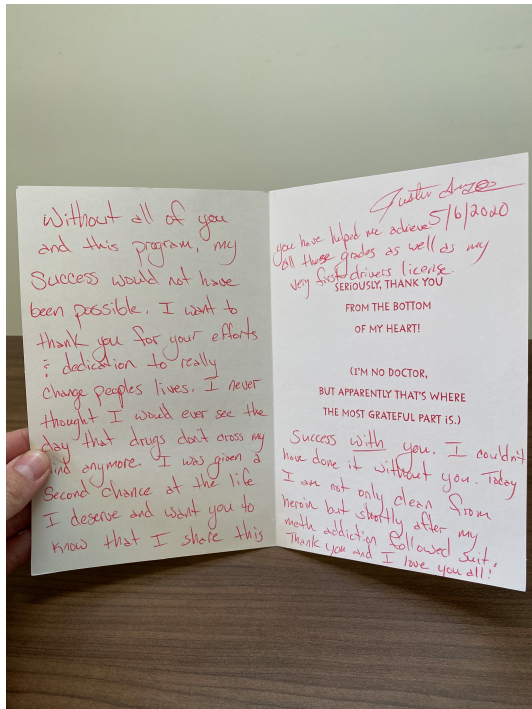 Without all of you
and this program, my
Success would not have
been possible. I want to
thank you for your efforts
& dedication to really
change peoples lives. I never
thought I would ever see the
day that drugs don't cross my
mind anymore. I was given a
second chance at the life
I deserve and want you to
know that I share this
5/6/2020
you have helped me achieve
all these grades as well as my
very first drivers license.
SERIOUSLY, THANK YOU
FROM THE BOTTOM
OF MY HEART!
(I'M NO DOCTOR,
BUT APPARENTLY THAT'S WHERE
THE MOST GRATEFUL PART IS.)
Success with you. I couldn't
have done it without you. Today
I am not only clean from
heroin but shortly after my
meth addiction followed suit.
Thank you and I love you all!